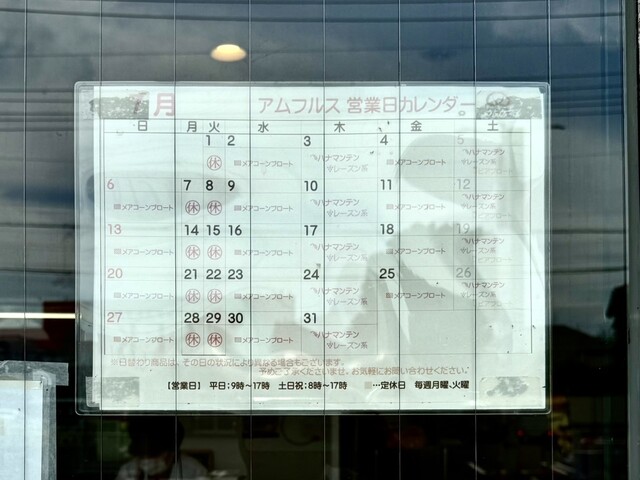 月 アムフルス 営業日カレンダー
日 月 火 水 木 金 土
1 2 3 4 5
休 メアコーンブロート ハナマンテン メアコーンブロート ハナマンテン
レーズン系 レーズン系
6 7 8 9 10 11 12
メアコーンブロート 休 休 メアコーンブロート ハナマンテン メアコーンブロート ハナマンテン
レーズン系 レーズン系
13 14 15 16 17 18 19
メアコーンブロート 休 休 メアコーンブロート ハナマンテン メアコーンブロート ハナマンテン
レーズン系 レーズン系
20 21 22 23 24 25 26
メアコーンブロート 休 休 メアコーンブロート ハナマンテン メアコーンブロート ハナマンテン
レーズン系 レーズン系
27 28 29 30 31
メアコーンブロート 休 休 メアコーンブロート ハナマンテン
レーズン系
※日替わり商品は、その日の状況により異なる場合もございます。
予めご了承くださいませ。お気軽にお問い合わせください。
【営業日】 平日:9時~17時 土日祝:8時~17時 …定休日 毎週月曜、火曜